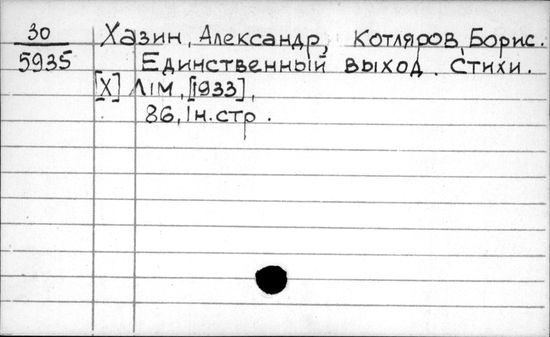 30 Хазин, Александр, Котляров, Борис.
5935 Единственный выход. Стихи.
[Х] ЛІМ, [1933],
86, 1 н. стр.